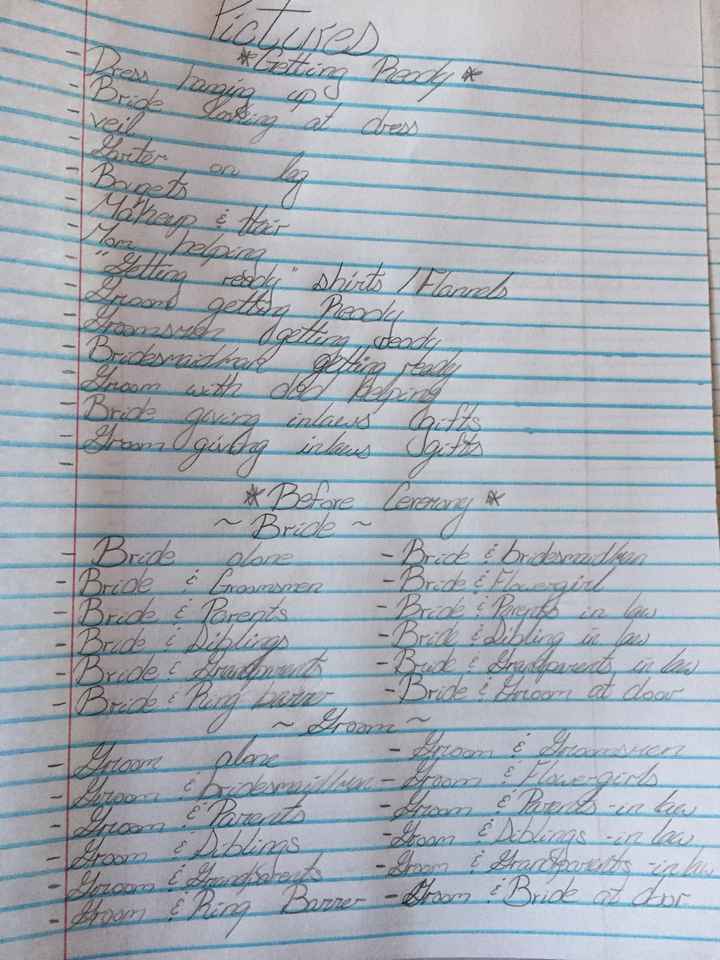 Pictures
*Getting Ready*
- Dress hanging up
- Bride looking at dress
- Veil
- Garter on leg
- Boquets
- Makeup & Hair
- Mom helping
- "Getting ready" shirts / Flannels
- Groom getting Ready
- Groomsmen getting ready
- getting ready
- Groom with dad helping
- Bride giving inlaws gifts
- Groom giving inlaws gifts
* Before Ceremony *
~ Bride ~
- Bride alone - Bride &
- Bride & Groomsmen - Bride & Flowergirl
- Bride & Parents - Bride & Parents in law
- Bride & Siblings - Bride & Sibling in law
- Bride & Grandparents - Bride & Grandparents in law
- Bride & Ring barrer - Bride & Groom at door
~ Groom ~
- Groom alone - Groom & Groomsmen
- Groom & - Groom & Flowergirls
- Groom & Parents - Groom & Parents-in law
- Groom & Siblings - Groom & Siblings-in law
- Groom & Grandparents - Groom & Grandparents-in law
- Groom & Ring Barrer - Groom & Bride at door